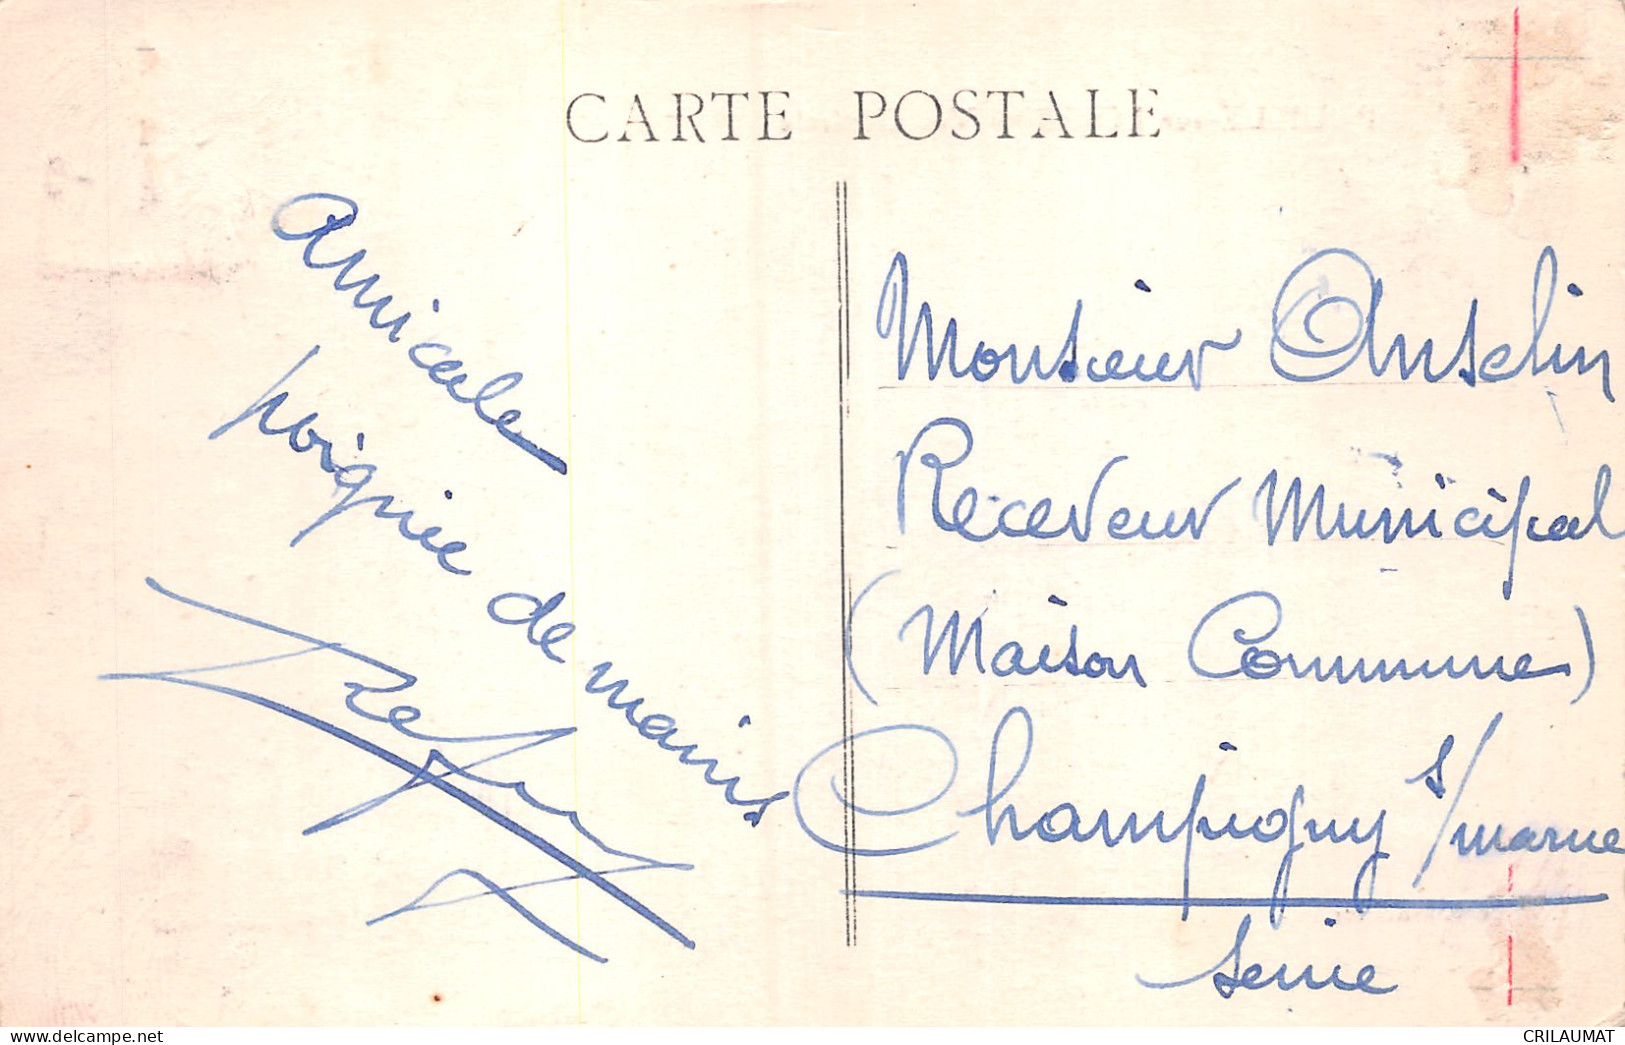 CARTE POSTALE
Amicale
poignée de mains
Monsieur Anselin
Receveur Municipal
(Maison Commune)
Champigny s/marne
Seine
CRILAUMAT